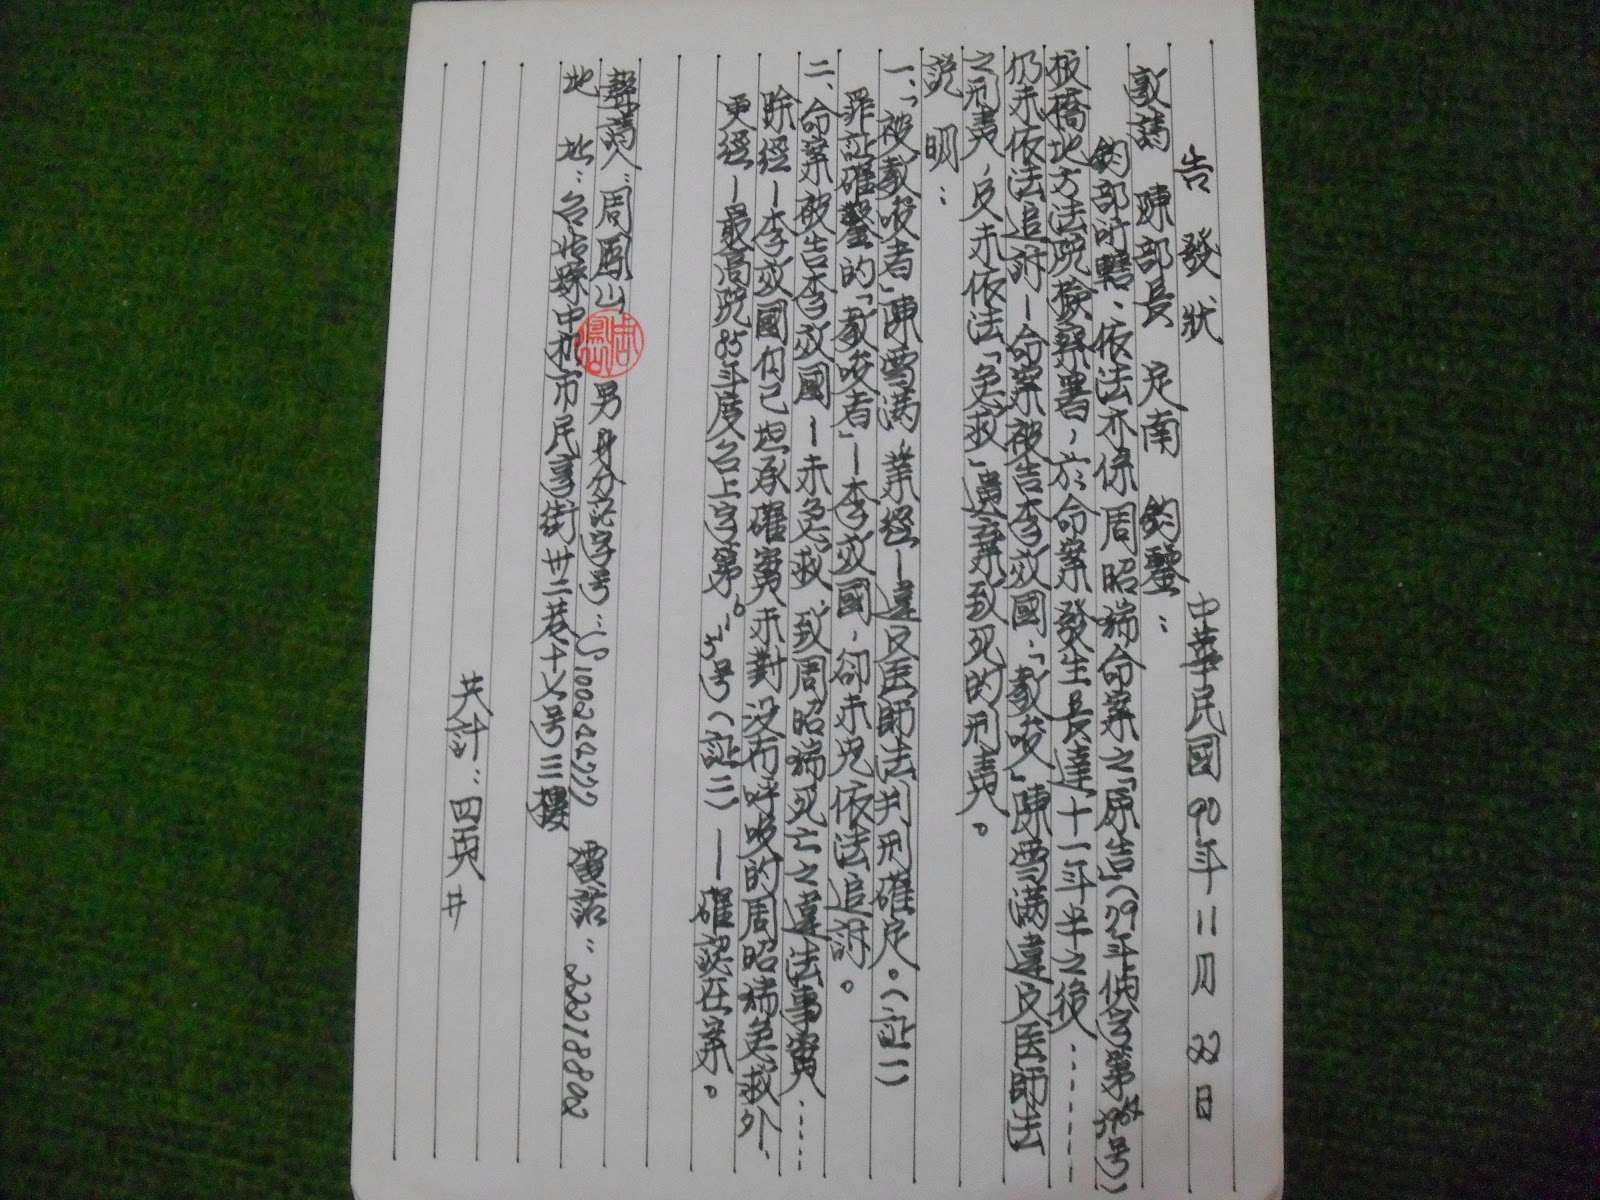 告發狀 中華民國90年11月22日
敬請 陳部長 定南 鈞鑒：
鈞部所轄、依法亦係周昭瑞命案之「原告」(79年偵字第號)
板橋地方法院檢察署，於命案發生長達十一年半之後……
仍未依法追訴－命案被告李政國，「教唆」陳雪滿違反医師法
之刑責，及未依法「急救」遺棄致死的刑責。
説明：
一、「被教唆者」陳雪滿，業經－違反医師法判刑確定。(証一)
罪証確鑿的「教唆者」－李政國，卻未見依法追訴。
二、命案被告李政國－未急救，致周昭瑞死亡之違法事實……
除經－李政國自己坦承確實未對沒而呼吸的周昭瑞急救外、
更經－最高院85年度台上字第号(証二)－－確認在案。
敬請人：周鳳山 男 身分証字号：S100222422 電話：22218802
地 址：台北縣中和市民享街卅二巷十七号三樓
共計：四頁 井
周鳳山